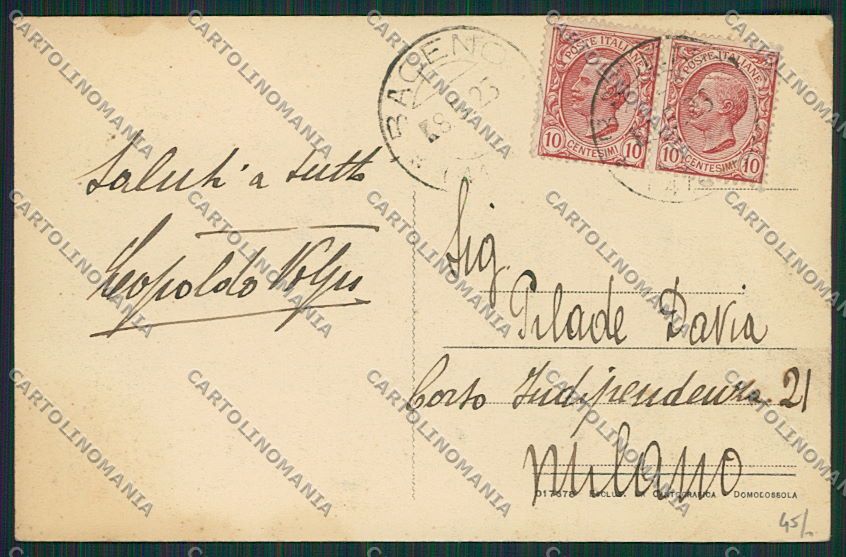 BACENO
POSTE ITALIANE
10 CENTESIMI 10
POSTE ITALIANE
10 CENTESIMI 10
Saluti a tutti
Leopoldo
Sig.
Pilade Davia
Corso Indipendenza. 21
Milano
017378 ESCLUS. CARTOGRAFICA DOMODOSSOLA
45/
CARTOLINOMANIA